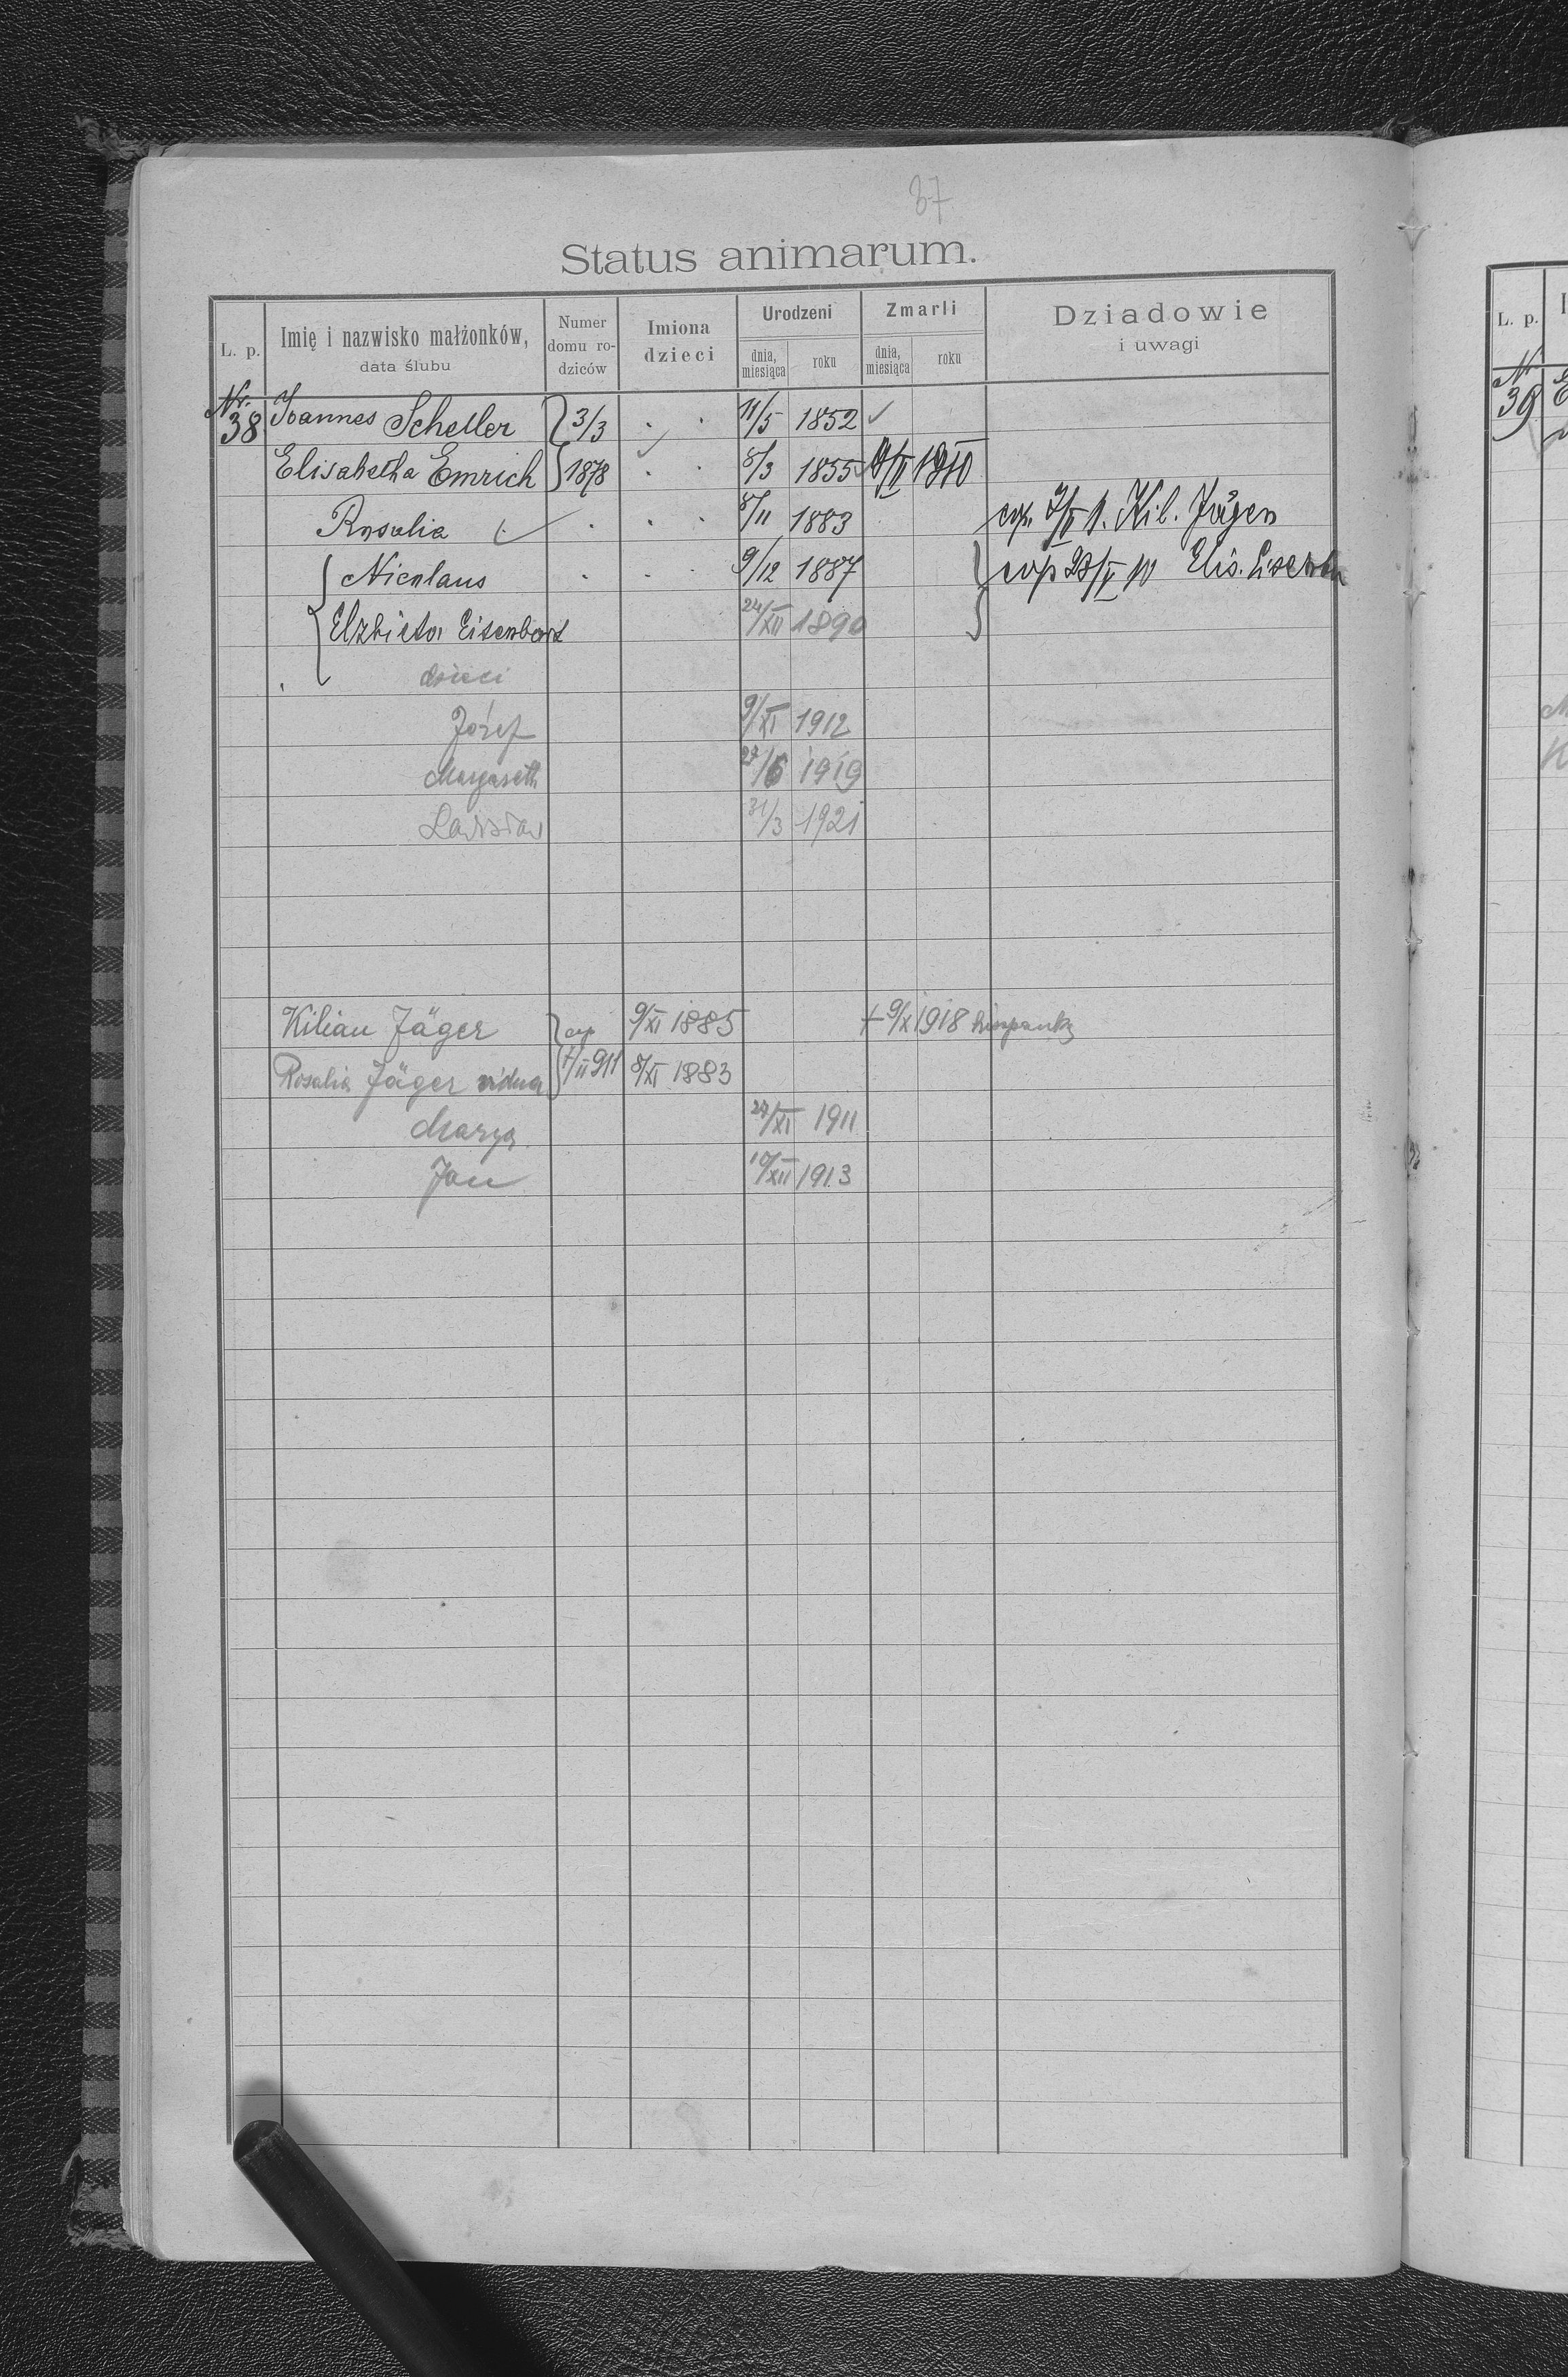 37
Status animarum.
L. p. Imię i nazwisko małżonków, data ślubu Numer domu rodziców Imiona dzieci Urodzeni dnia, miesiąca roku Zmarli dnia, miesiąca roku Dziadowie i uwagi
Nr. 38 Joannes Scheller } 3/3 11/5 1852
Elisabetha Emrich } 1878 8/3 1855 1910
Rosalia 8/11 1883 cop. Kil. Jäger
Nicolaus 9/12 1887 cop 23/V 10 Elis.
Elzbieta Eisenbart 24/XII 1890
dzieci
Józef 9/XI 1912
Margareth 27/6 1919
31/3 1921
Kilian Jäger } cop 9/XI 1885 + 9/X 1918 hiszpanką
Rosalia Jäger vidua } 7/II 911 8/XI 1883
Marya 27/XI 1911
Jan 10/XII 1913
L. p.
39